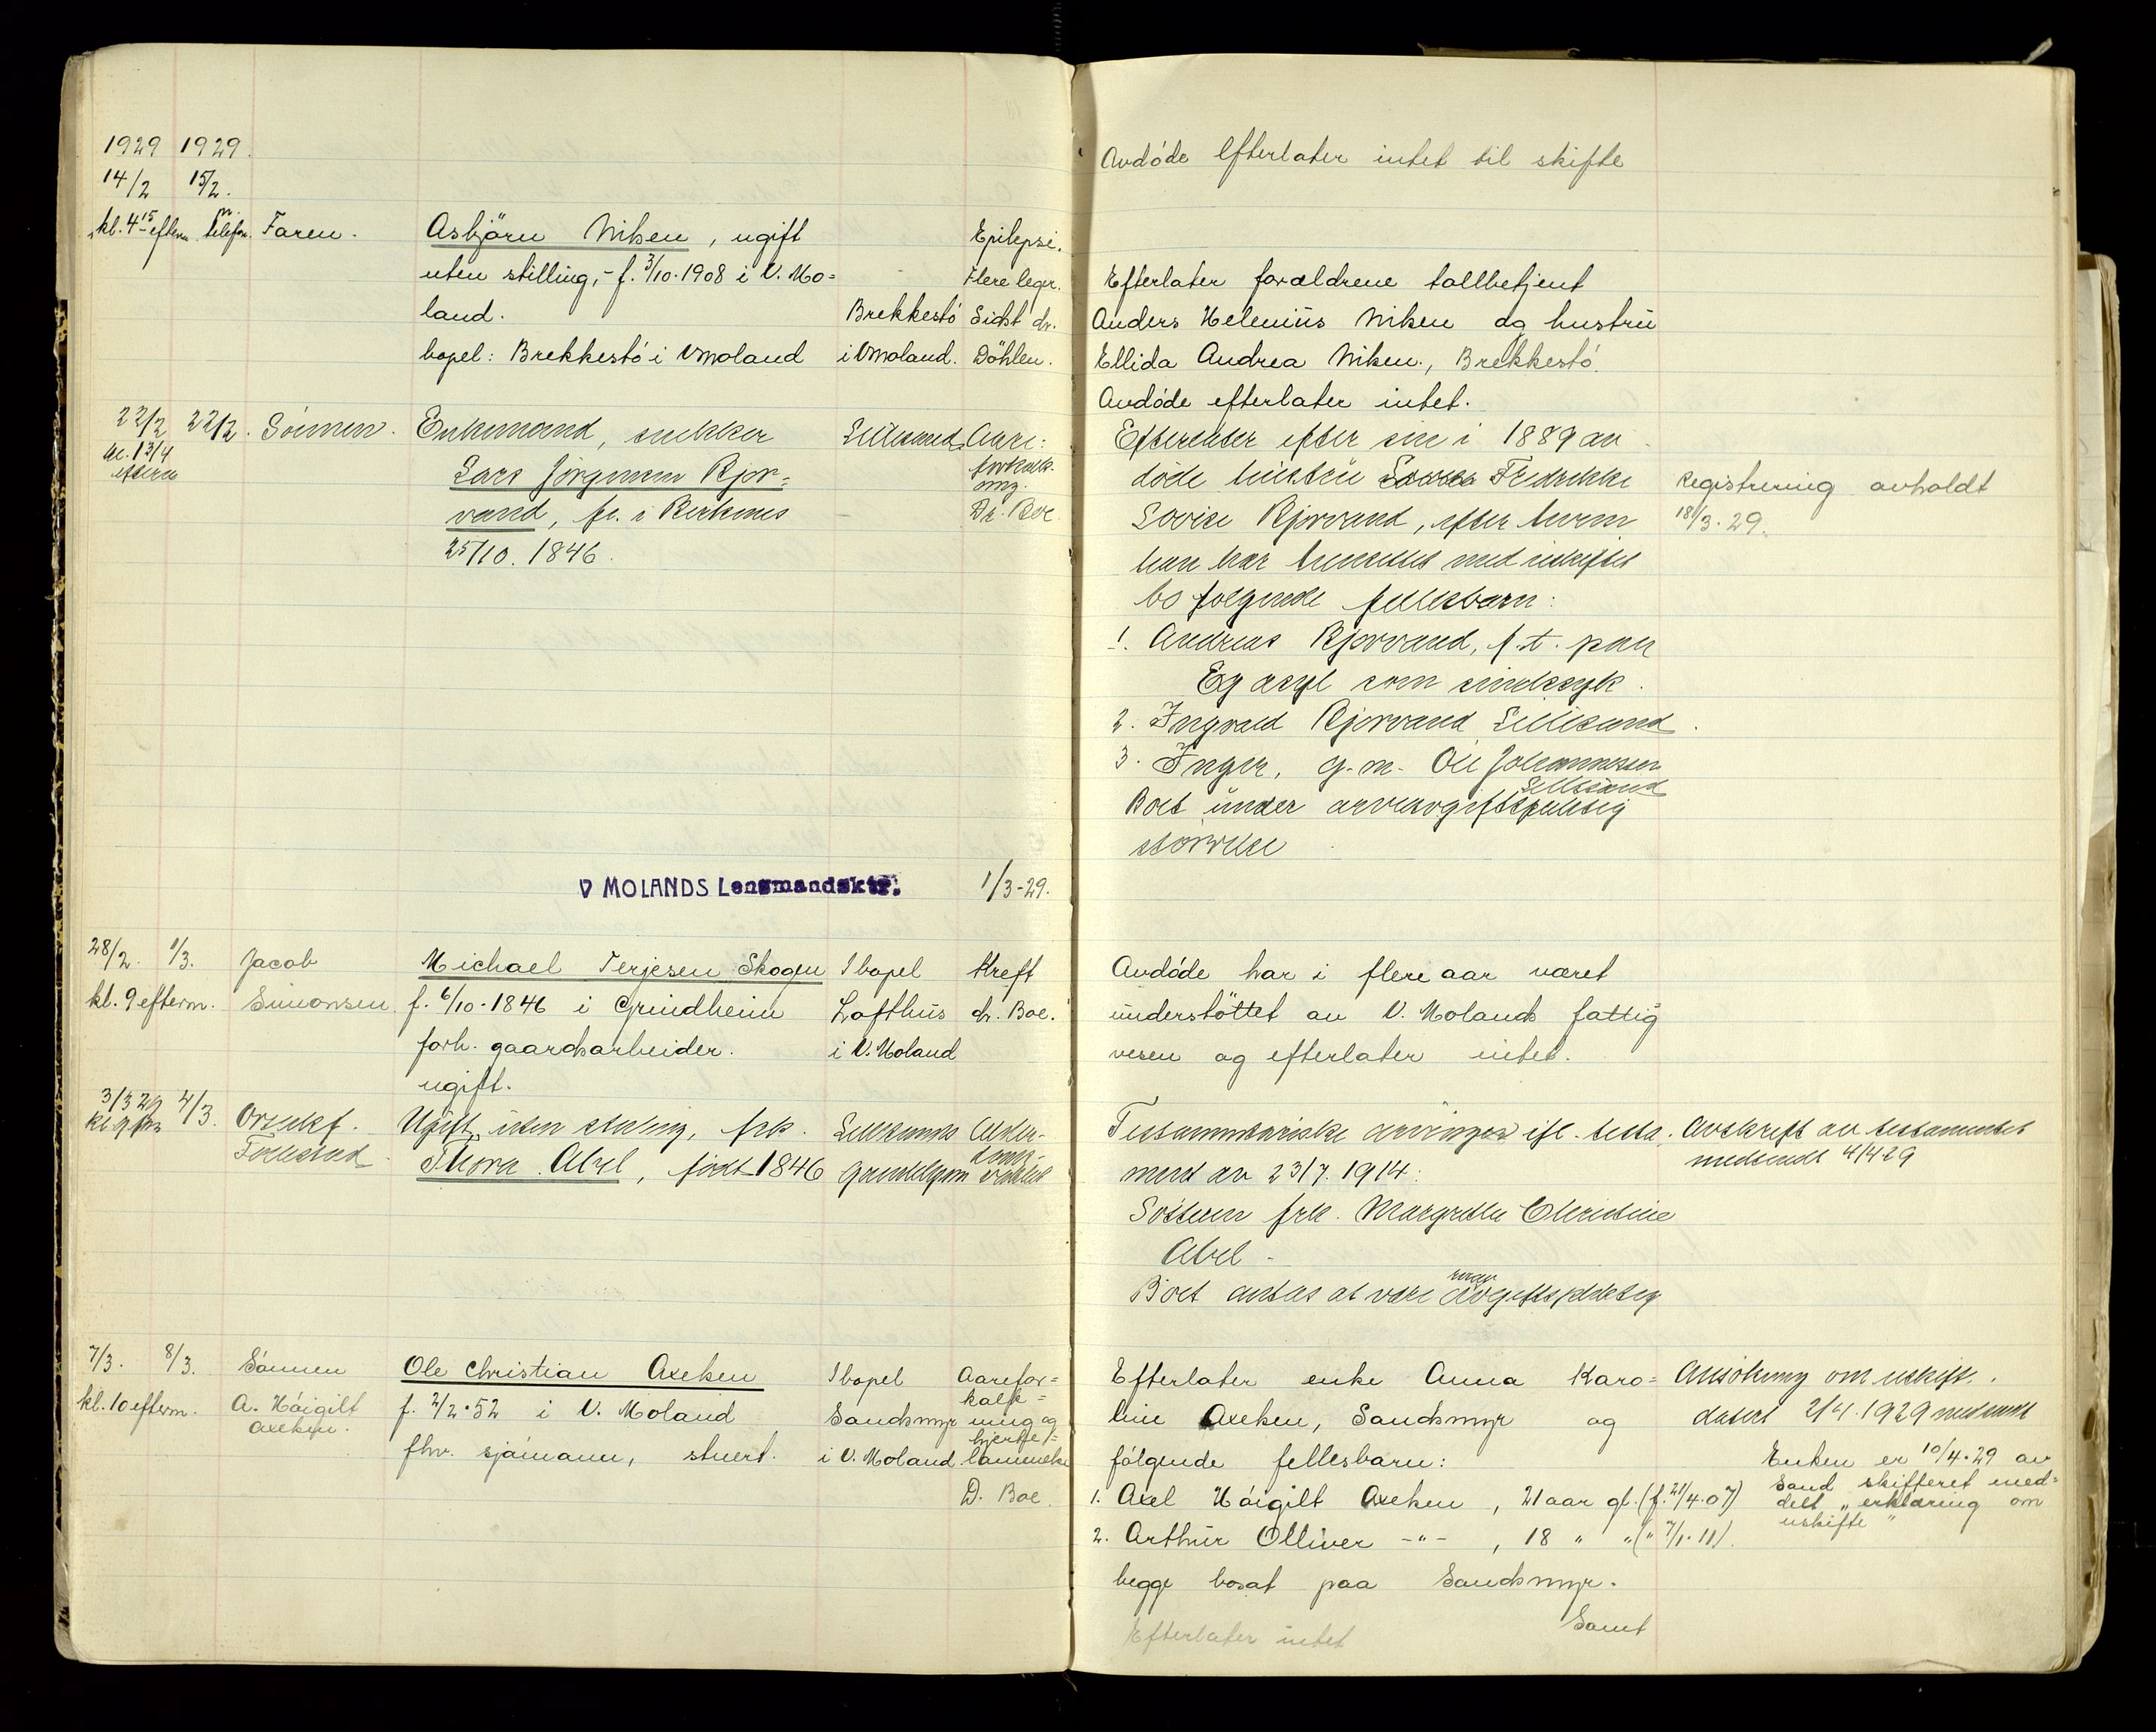 1929 1929.
14/2 15/2.
kl. 4 15 efterm. telefon. Faren.
Asbjörn Nilsen, ugift Epilepsi.
uten stilling, - f. 3/10. 1908 i V. Mo= Flere leger.
land. Brekkestö Sidst dr.
bopel: Brekkestö i Vmoland i Vmoland. Döhlen.
22/2 22/2. Sönnen. Enkemand, snekker Lillesand. Aare:
kl. 1 3/4 forkalk-
efterm Lars Jörgensen Rjor= ning.
vand, f. i Birkenes Dr. Boe
25/10. 1846.
V MOLANDS Lensmandsktr. 1/3-29.
28/2. 1/3. Jacob Michael Terjesen Skogen I bopel Kreft
kl. 9 efterm. Simonsen f. 6/10-1846 i Grindheim Lofthus dr. Boe.
forh. gaardsarbeider. i V. Moland
ugift.
3/3 29 4/3. Ugift, uten stilling, frk. Lillesands Alder-
kl 9 fm doms-
Thora Abel, födt 1846 gamlehjem
7/3. 8/3. Sönnen Ole Christian Axelsen I bopel Aarefor=
kalk=
kl. 10 efterm. A. Höigilt f. 2/2.52 i V. Moland Sandsmyr ning og
Axelsen. hjerte=
fhv. sjömann, stuert. i V. Moland lammelse
D. Boe.
Avdöde efterlater intet til skifte
Efterlater forældrene tollbetjent
Anders Helenius Nilsen og hustru
Ellida Andrea Nilsen, Brekkestö.
Avdöde efterlater intet.
Efterlater efter sin i 1889 av
döde hustru Fredrikke
Lovise Rjorvand, efter hvem
han har hensittet med uskiftet
bo følgende fellesbarn:
1. Andreas Rjorvand, f.t. paa
Eg asyl som sindssyk.
2. Ingvald Rjorvand Lillesand.
3. Inger, g.m. Ole Johannesen
Lillesand
Boet under arveavgiftspliktig
störrelse
Registrering avholdt
18/3. 29.
Avdöde har i flere aar været
understöttet av V. Molands fattig=
vesen og efterlater intet.
Testamentariske arvinger ifl. testa-
ment av 23/7. 1914:
Söstern frk. Margrethe Christine
Abel -
Boet antas at være avgiftspliktig
Avskrift av testamentet
medsendt 4/4 29
Efterlater enke Anna Karo=
line Axelsen, Sandsmyr og
følgende fellesbarn:
1. Axel Höigilt Axelsen, 21 aar gl. (f. 21/4.07)
2. Arthur Olliver -"-, 18 " " (" 7/1. 11).
begge bosat paa Sandsmyr.
Samt
Efterlater intet
Ansökning om uskift.
datert 2/4. 1929 medsendt
Enken er 10/4.29 av
Sand skifteret med=
delt "erklæring om
uskifte"